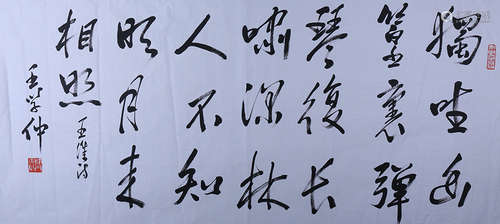 獨坐幽
篁裏彈
琴復長
嘯深林
人不知
明月來
相照
王維詩
王学仲